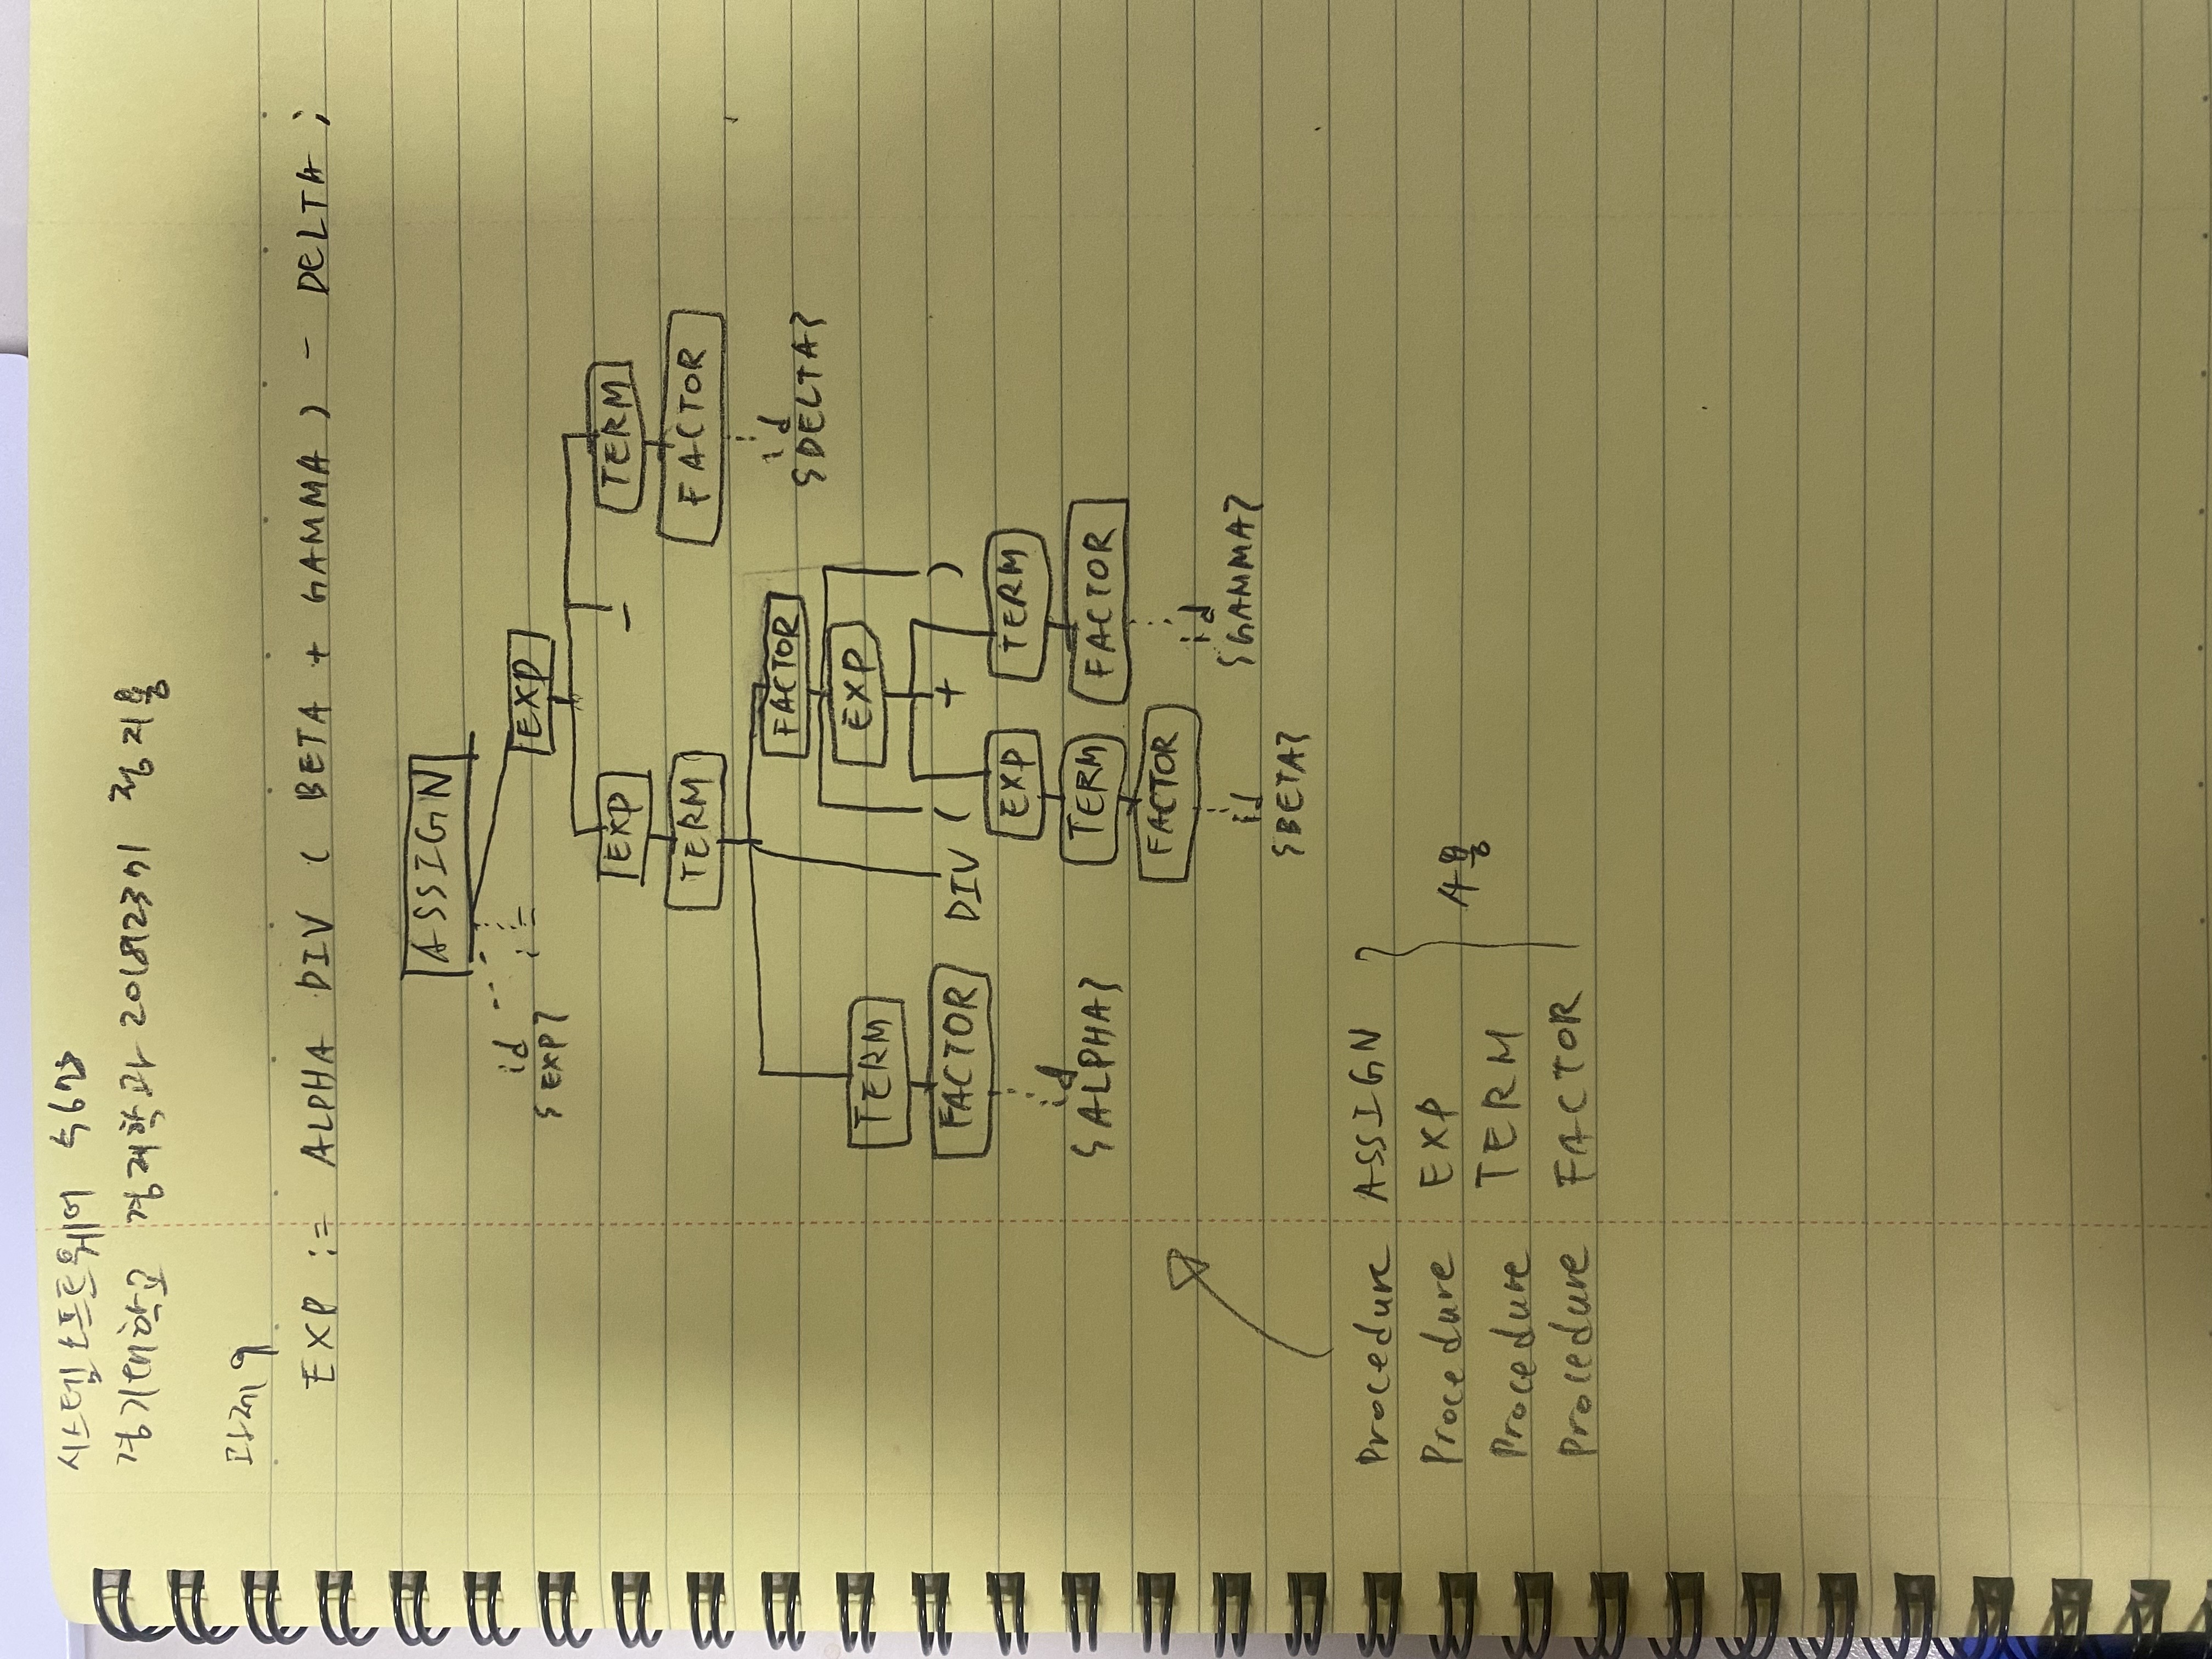 시스템소프트웨어 수6773
경기대학교 경제학과 정지용
과제 9
EXP := ALPHA DIV ( BETA + GAMMA ) - DELTA ;
ASSIGN
id := EXP
{EXP}
EXP - TERM
TERM FACTOR
id
{DELTA}
FACTOR
TERM EXP
FACTOR DIV ( + )
EXP TERM
id
{ALPHA} TERM FACTOR
FACTOR id
{GAMMA}
id
{BETA}
Procedure ASSIGN
Procedure EXP
Procedure TERM
Procedure FACTOR
사용